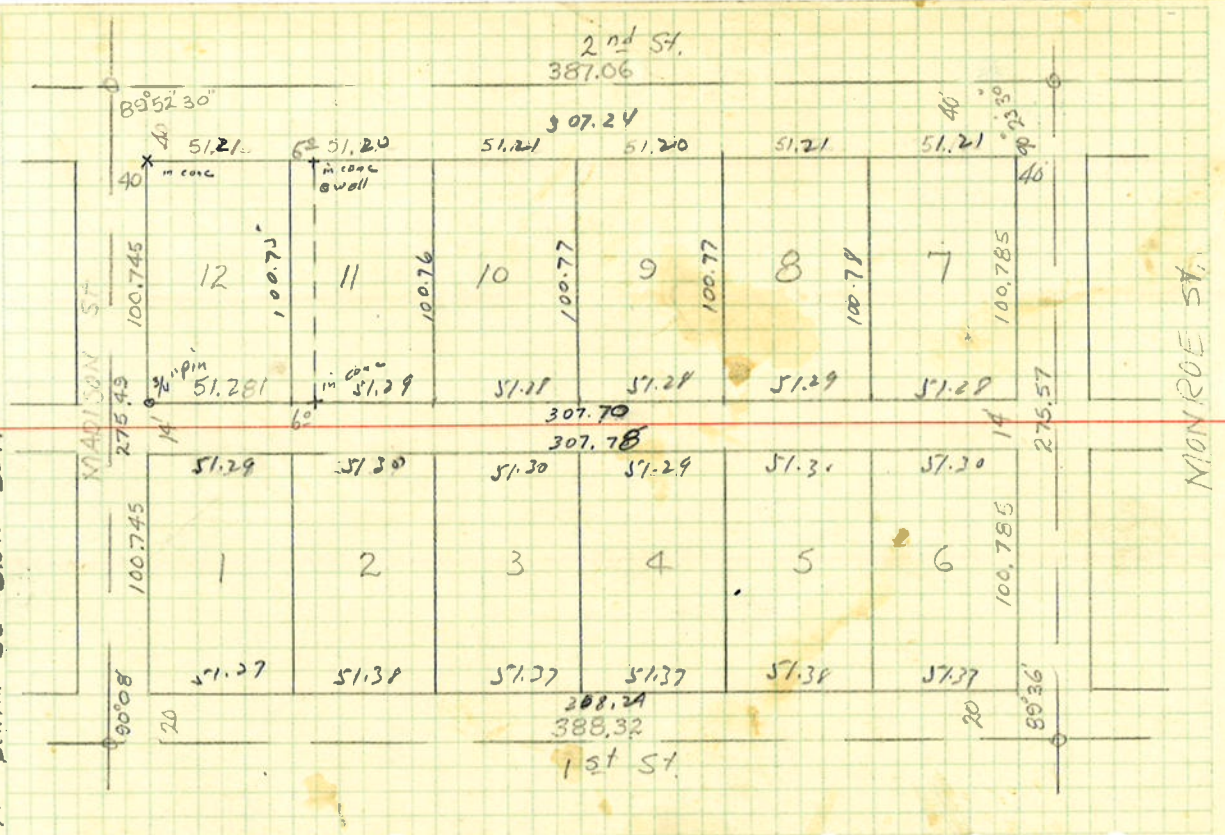 2nd St.
387.06
89°52'30"
40
40'
90°23'30"
307.24
51.21 6⁰⁰ 51.20 51.21 51.20 51.21 51.21
40
in conc
in conc
@ wall
40
MADISON ST
MONROE ST.
100.745
12
100.75'
11
100.76
10
100.77
9
100.77
8
100.78
7
100.785
3/4" pin
51.281
in conc
51.29
51.28
51.28
51.29
51.28
275.49
14'
6⁰⁰
307.70
14
275.57
307.78
51.29 51.30 51.30 51.29 51.31 51.30
100.745
1 2 3 4 5 6
100.785
51.37 51.38 51.37 51.37 51.38 51.37
90°08'
20
308.24
20
89°36'
388.32
1st St.